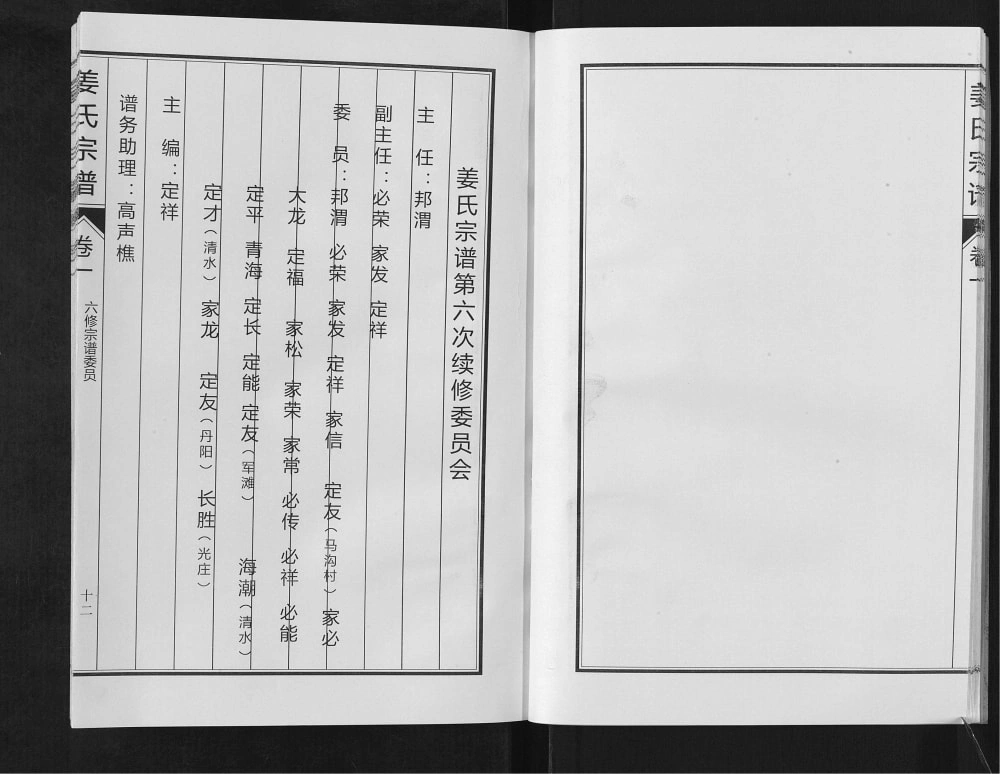 姜氏宗谱第六次续修委员会
主 任：邦渭
副主任：必荣 家发 定祥
委 员：邦渭 必荣 家发 定祥 家信 定友（马沟村） 家必
大龙 定福 家松 家荣 家常 必传 必祥 必能
定平 青海 定长 定能 定友（军滩） 海潮（清水）
定才（清水） 家龙 定友（丹阳） 长胜（光庄）
主 编：定祥
谱务助理：高声樵
姜氏宗谱 卷一 六修宗谱委员 十二
姜氏宗谱 卷一